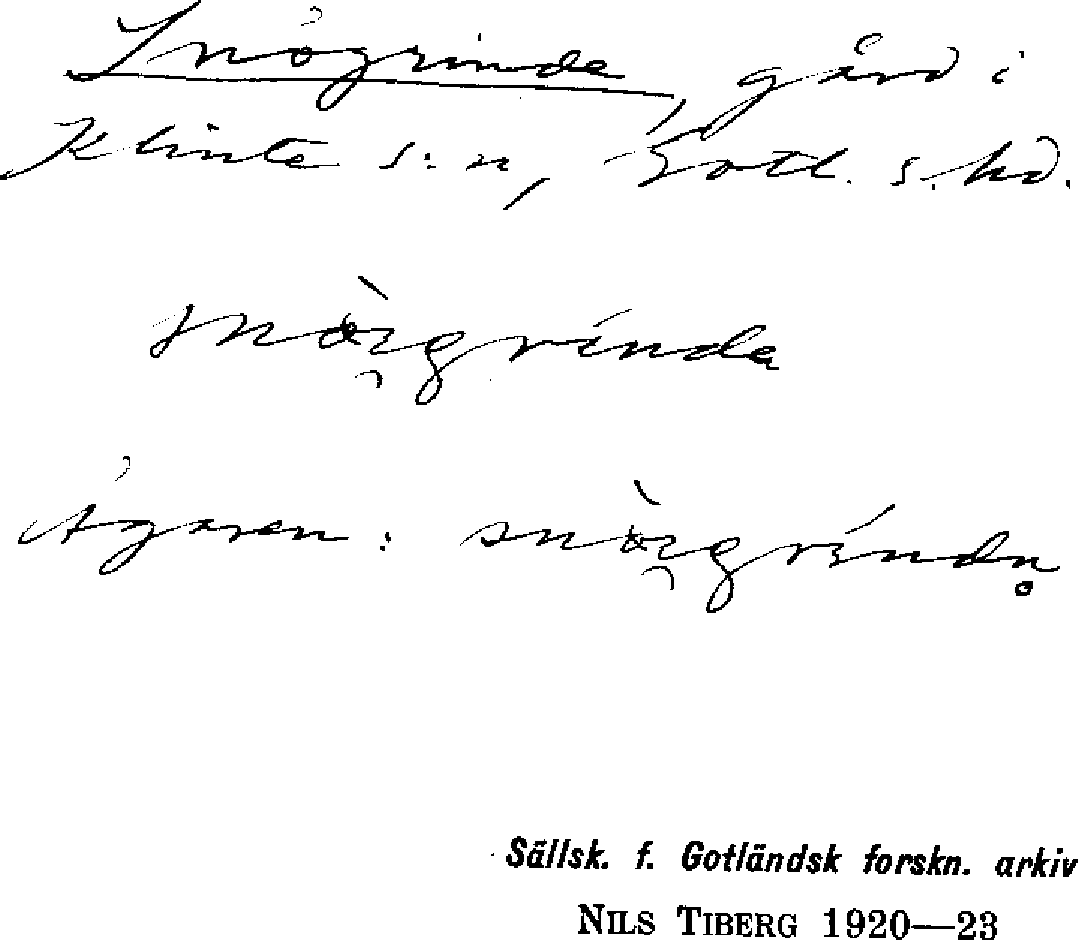 Snögrinde, gård i
Klinte s:n, Gotl. s. hd.
Ägaren:
Sällsk. f. Gotländsk forskn. arkiv
NILS TIBERG 1920—23